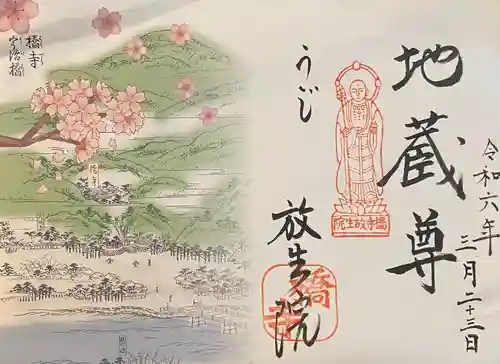 令和六年
三月二十三日
地蔵尊
橋寺放生院
うぢ
放生院
橋寺
橋寺
宇治橋